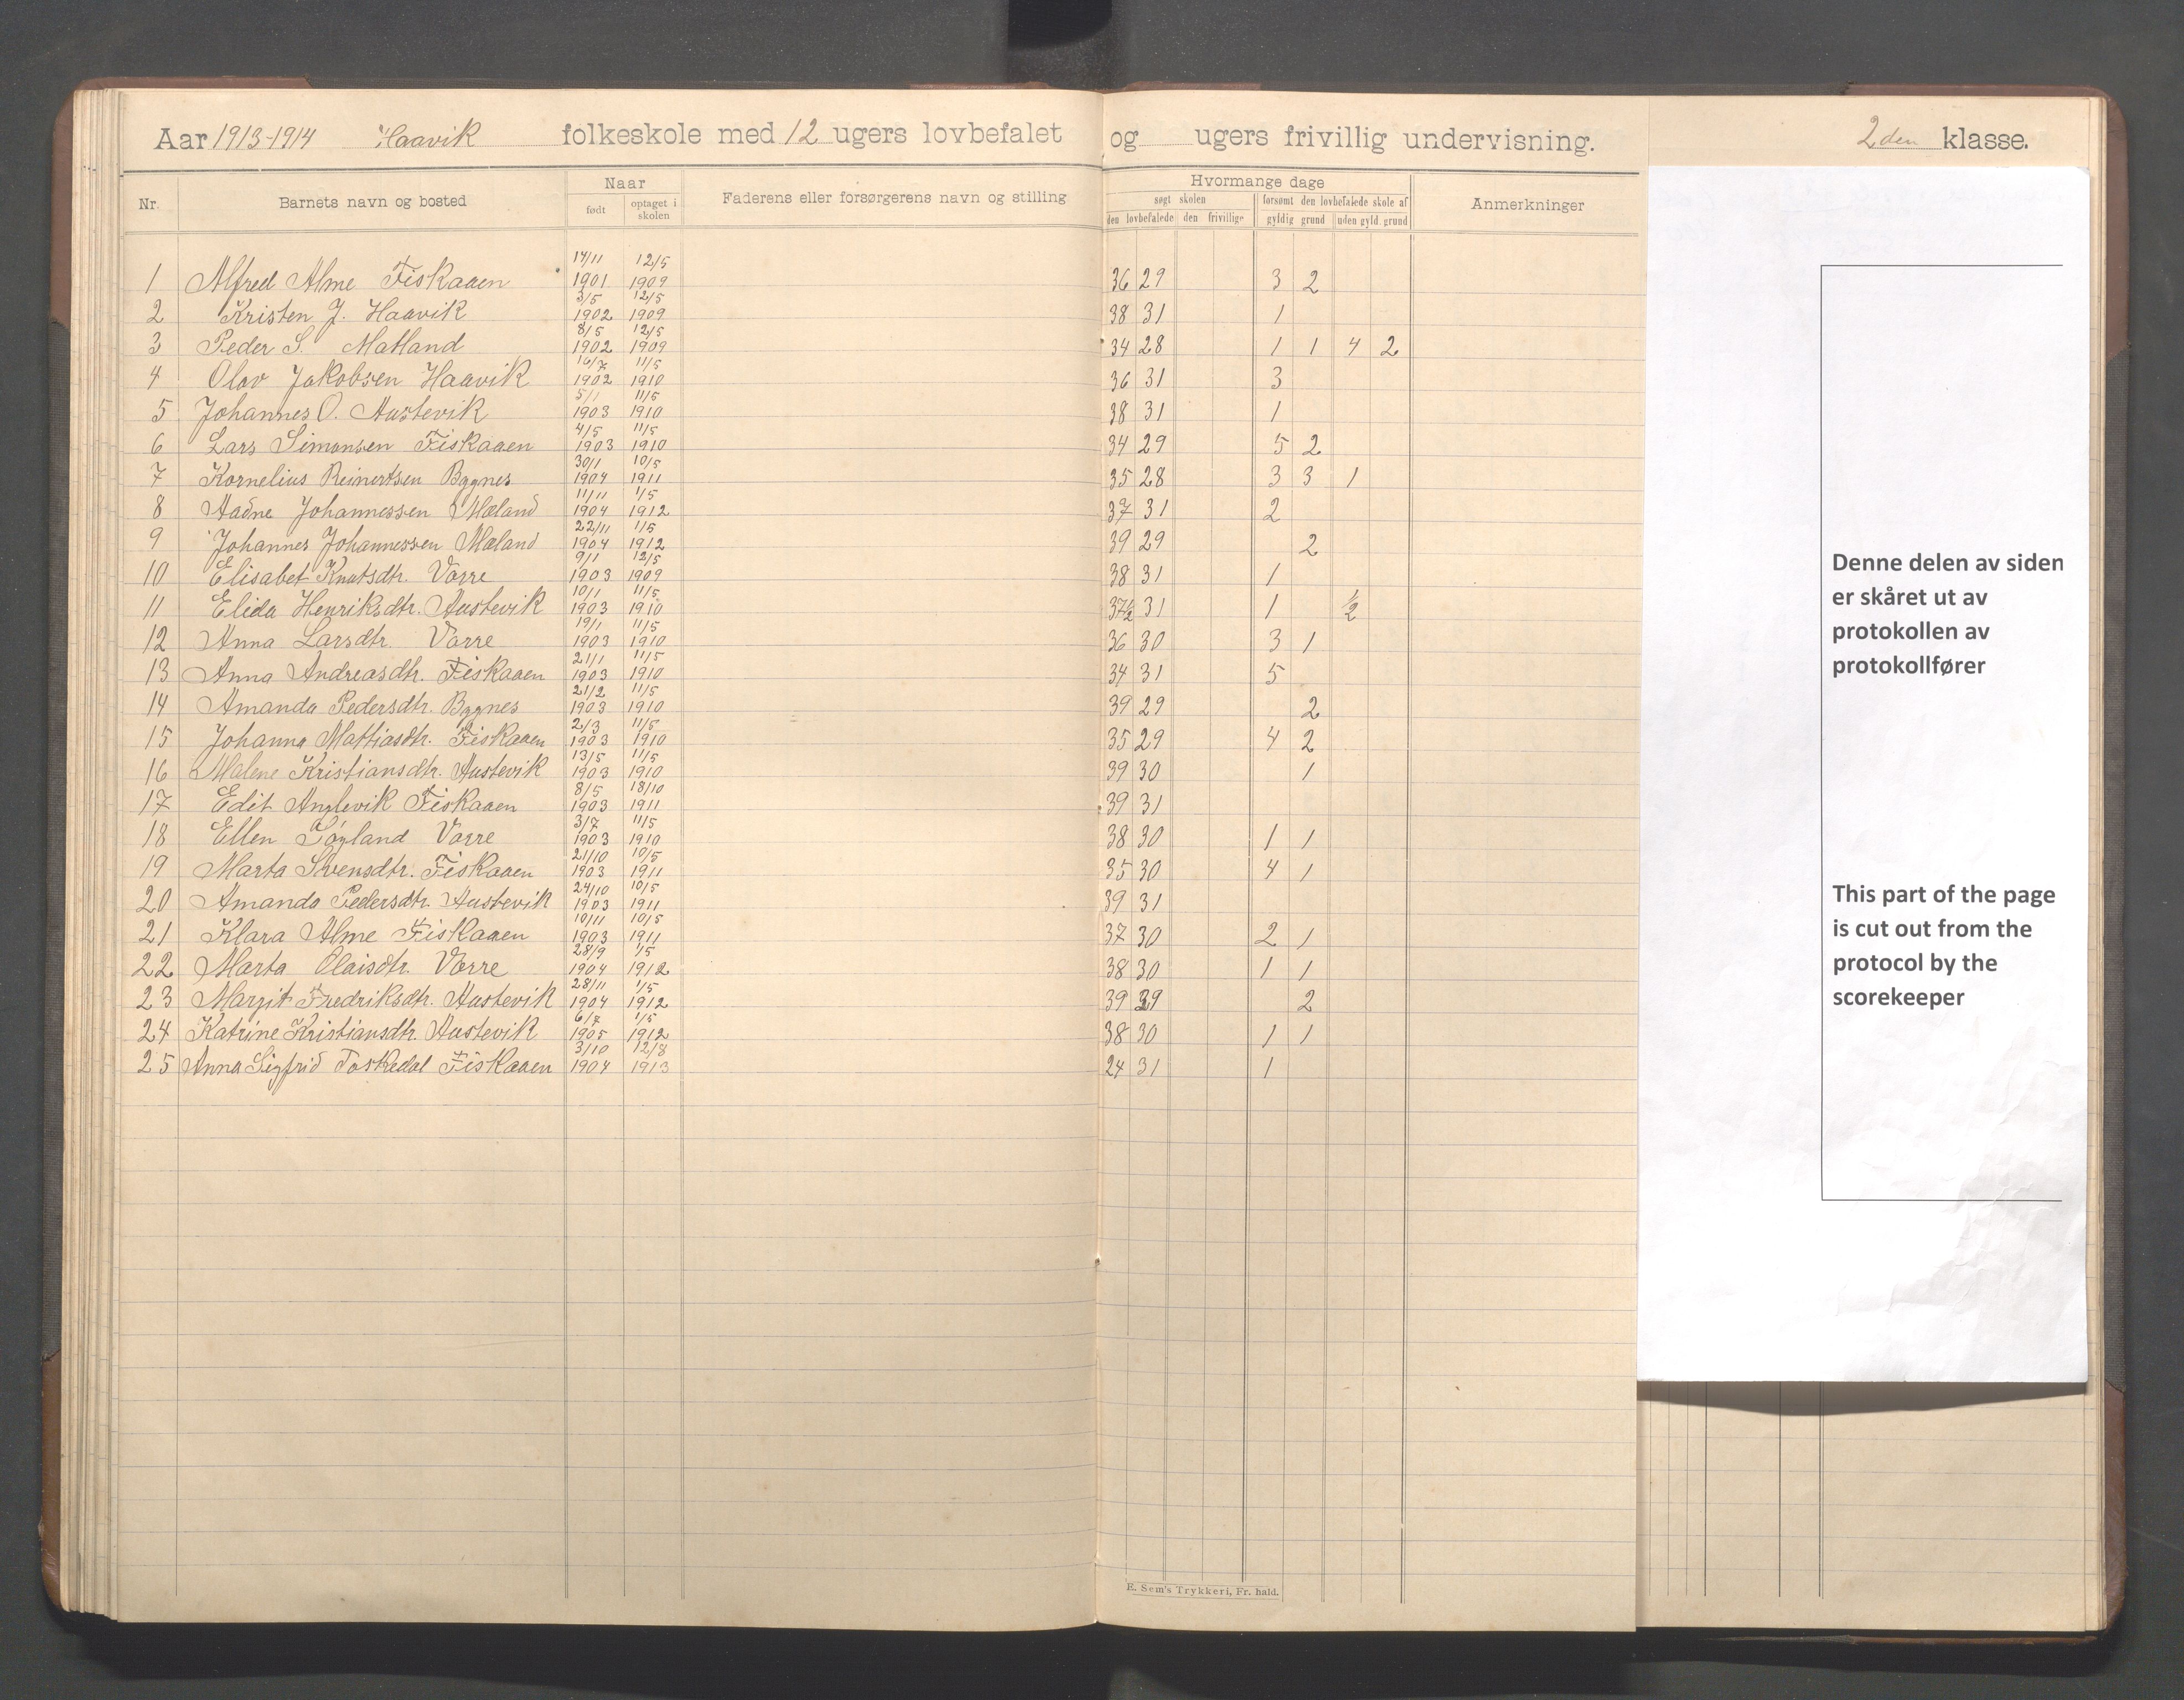 Aar 1913-1914 Haavik folkeskole med 12 ugers lovbefalet og ugers frivillig undervisning. 2den klasse.
Nr. Barnets navn og bosted Naar født optaget i skolen Faderens eller forsørgerens navn og stilling Hvormange dage søgt skolen den lovbefalede den frivillige forsømt den lovbefalede skole af gyldig grund uden gyld. grund Anmerkninger
1 Alfred Alme Fiskaaen 14/11 1901 12/5 1909 36 29 3 2
2 Kristen J. Haavik 3/5 1902 12/5 1909 38 31 1
3 Peder S. Matland 8/5 1902 12/5 1909 34 28 1 1 4 2
4 Olav Jakobsen Haavik 16/7 1902 11/5 1910 36 31 3
5 Johannes O. Austevik 5/1 1903 11/5 1910 38 31 1
6 Lars Simonsen Fiskaaen 4/5 1903 11/5 1910 34 29 5 2
7 Kornelius Reinertsen Bygnes 30/1 1904 10/5 1911 35 28 3 3 1
8 Aadne Johannessen Mæland 11/11 1904 1/5 1912 37 31 2
9 Johannes Johannessen Mæland 22/11 1904 1/5 1912 39 29 2
10 Elisabet Knutsdtr. Vorre 9/1 1903 12/5 1909 38 31 1
11 Elida Henriksdtr. Austevik 10/1 1903 11/5 1910 37½ 31 1 ½
12 Anna Larsdtr. Vorre 19/1 1903 11/5 1910 36 30 3 1
13 Anna Andreasdtr. Fiskaaen 21/1 1903 11/5 1910 34 31 5
14 Amanda Pedersdtr. Bygnes 21/2 1903 11/5 1910 39 29 2
15 Johanna Mattiasdtr. Fiskaaen 2/3 1903 11/5 1910 35 29 4 2
16 Malene Kristiansdtr. Austevik 13/5 1903 11/5 1910 39 30 1
17 Edit Anglevik Fiskaaen 8/5 1903 18/10 1911 39 31
18 Ellen Vorre 3/7 1903 11/5 1910 38 30 1 1
19 Marta Svensdtr. Fiskaaen 21/10 1903 10/5 1911 35 30 4 1
20 Amanda Pedersdtr. Austevik 24/10 1903 10/5 1911 39 31
21 Klara Alme Fiskaaen 10/11 1903 10/5 1911 37 30 2 1
22 Marta Olaisdtr. Vorre 28/9 1904 1/5 1912 38 30 1 1
23 Margit Fredriksdtr. Austevik 28/11 1904 1/5 1912 39 29 2
24 Katrine Kristiansdtr. Austevik 6/7 1905 1/5 1912 38 30 1 1
25 Anna Sigfrid Fiskaaen 3/10 1904 12/8 1913 24 31 1
E. Sem's Trykkeri, Fr. hald.
Denne delen av siden
er skåret ut av
protokollen av
protokollfører
This part of the page
is cut out from the
protocol by the
scorekeeper